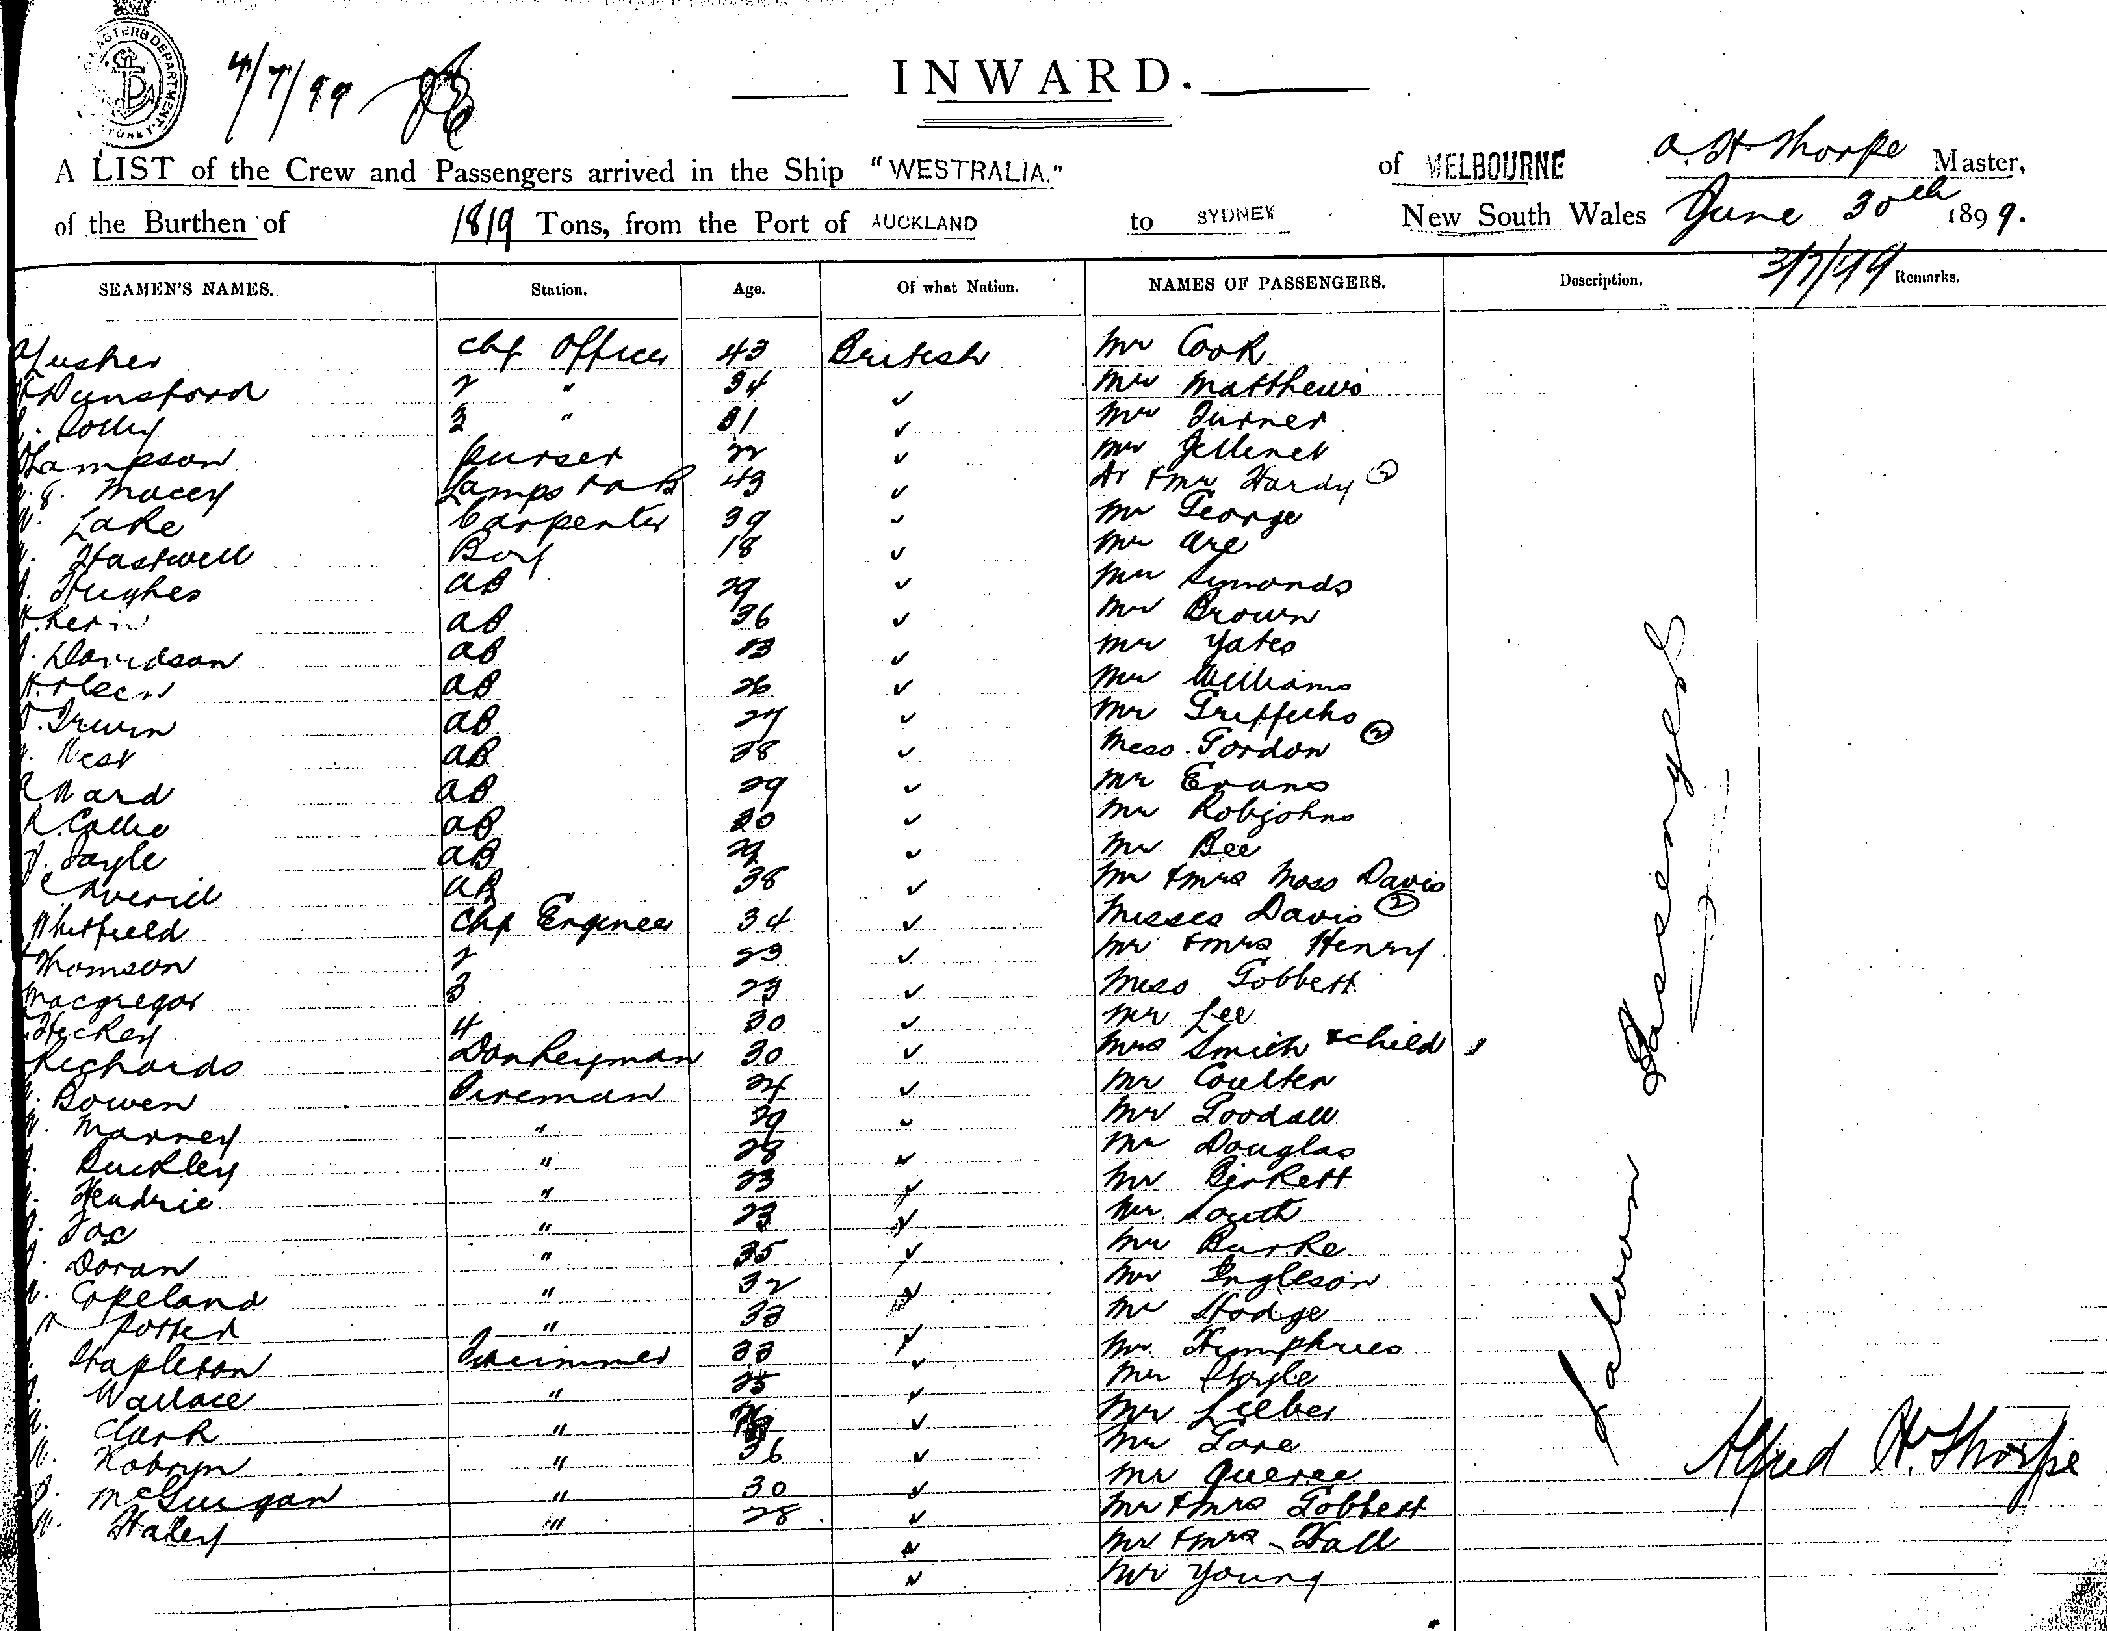 4/7/99
INWARD.
A LIST of the Crew and Passengers arrived in the Ship "WESTRALIA." of MELBOURNE A. H. Thorpe Master,
of the Burthen of 1819 Tons, from the Port of AUCKLAND to SYDNEY New South Wales June 30th 1899.
3/7/99
SEAMEN'S NAMES. Station. Age. Of what Nation. NAMES OF PASSENGERS. Description. Remarks.
Lusher Chf Officer 43 British Mr Cook
Dunsford 2 " 34 ✓ Mr Matthews
31 ✓ Mr Turner
Lampson Purser 22 ✓ Mr
Macey Lamps 43 ✓ Dr & Mrs Hardy ②
Lake Carpenter 39 ✓ Mr George
Hastwell Boy 18 ✓ Mr
Hughes AB 29 ✓ Mr Symonds
AB 36 ✓ Mr Brown
Davidson AB ✓ Mr Yates
AB 26 ✓ Mr Williams
Irwin AB 27 ✓ Mr Griffiths
West AB 38 ✓ Miss Gordon ②
Ward AB 29 ✓ Mr Evans
AB ✓ Mr Robjohns
Sayle AB 29 ✓ Mr Bee
Averill AB 38 ✓ Mr & Mrs Moss Davis
Whitfield Chf Engineer 34 ✓ Misses Davis ②
Thomson 2 23 ✓ Mr & Mrs Henry
Macgregor 3 23 ✓ Miss Gobbett
Hickey 4 30 ✓ Mr Lee
Richards Donkeyman 30 ✓ Mrs Smith & child
Bowen Fireman 24 ✓ Mr Coulter
Manney " 29 ✓ Mr Goodall
Buckley " 28 ✓ Mr Douglas
Hendrie " 23 ✓ Mr Birkett
Fox " 23 ✓ Mr South
Doran " 35 ✓ Mr Burke
Copeland " 32 ✓ Mr Ingleson
Potter " 33 ✓ Mr Hodge
Stapleton Trimmer 33 ✓ Mr Humphries
Wallace " 25 ✓ Mr Hoyle
Clark " ✓ Mr Lieber
" 36 ✓ Mr Gore
McGuigan " 30 ✓ Mr Queree
Haley " 28 ✓ Mr & Mrs Gobbett
✓ Mr & Mrs Hall
✓ Mr Young
Saloon Passengers
Alfred H. Thorpe